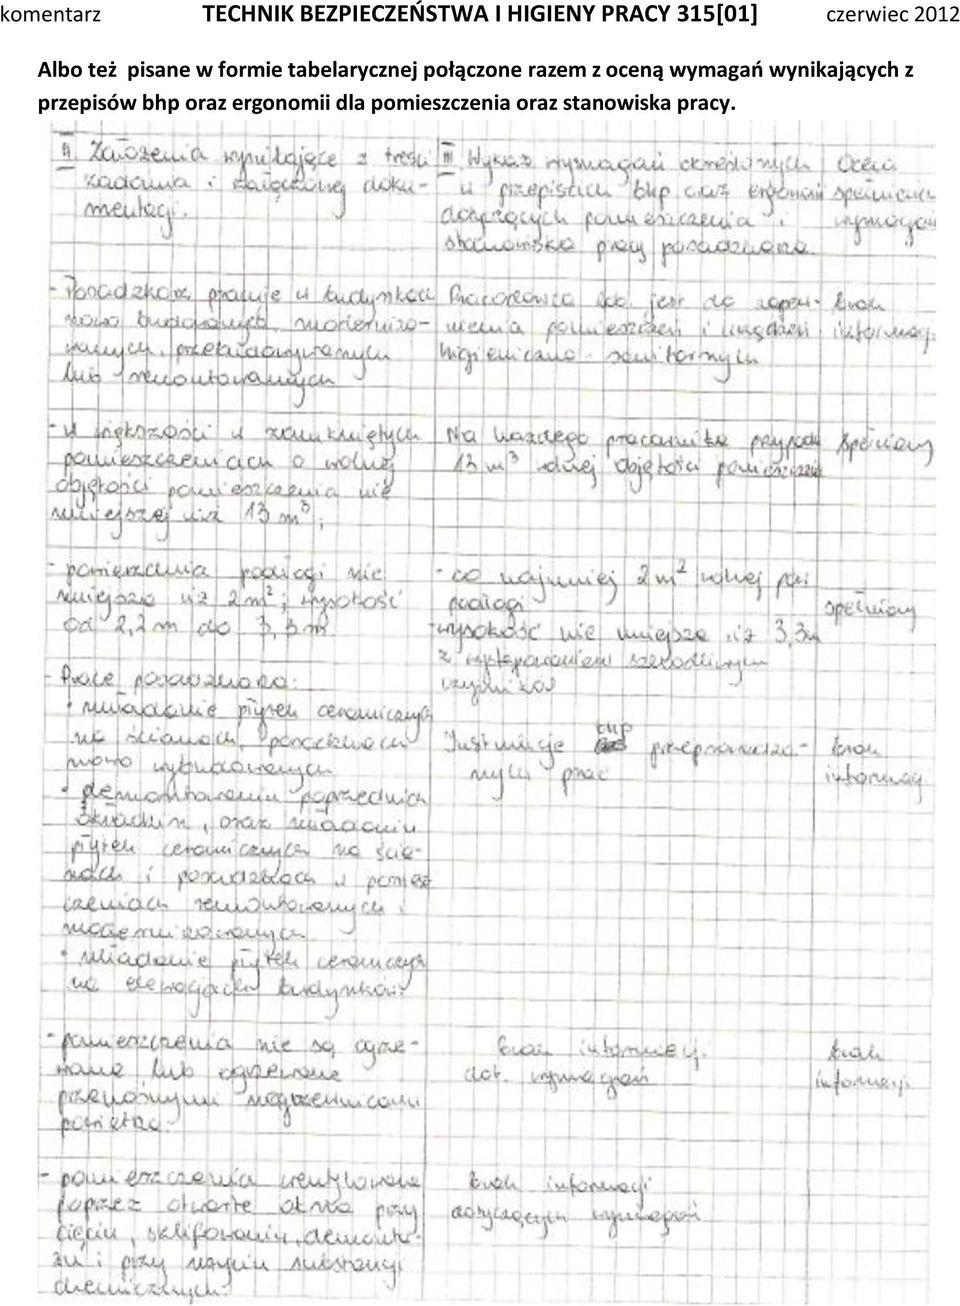 komentarz TECHNIK BEZPIECZEŃSTWA I HIGIENY PRACY 315[01] czerwiec 2012
Albo też pisane w formie tabelarycznej połączone razem z oceną wymagań wynikających z
przepisów bhp oraz ergonomii dla pomieszczenia oraz stanowiska pracy.
II. Założenia wynikające z treści
zadania i załączonej doku-
mentacji.
III Wykaz wymagań określonych
w przepisach bhp oraz ergonomii
dotyczących pomieszczenia i
stanowiska pracy posadzkarza.
Ocena
spełnienia
wymagań
- Posadzkarz pracuje w budynkach
nowo budowanych, modernizo-
wanych, przebudowywanych
lub remontowanych
Pracodawca ob. jest do zapew-
nienia pomieszczeń i urządzeń
higieniczno-sanitarnych
brak
informacji
- w większości w zamkniętych
pomieszczeniach o wolnej
objętości pomieszczenia nie
mniejszej niż 13 m³;
Na każdego pracownika przypada
13 m³ wolnej objętości pomieszczenia
spełniony
- pomieszczenia podłogi nie
mniejsza niż 2 m²; wysokość
od 2,2 m do 3,3 m
- co najmniej 2 m² wolnej pow.
podłogi
- wysokość nie mniejsza niż 3,3 m
z występowaniem szkodliwych
czynników
spełniony
- Prace posadzkarza:
• układanie płytek ceramicznych
na ścianach, posadzkach
nowo wybudowanych
• demontowaniu poprzednich
okładzin, oraz układaniu
płytek ceramicznych na ście-
nach i posadzkach w pomiesz
czeniach remontowanych i
modernizowanych
• układanie płytek ceramicznych
na elewacjach budynków.
Instrukcje bhp przeprowadza-
nych prac
brak
informacji
- pomieszczenia nie są ogrze-
wane lub ogrzewane
przenośnymi nagrzewnicami
powietrza.
brak informacji
dot. wymagań
brak
informacji
- pomieszczenia wentylowane
poprzez otwarte okna przy
cięciu, szlifowaniu, demonta-
żu i przy użyciu substancji
chemicznych.
brak informacji
dotyczących wymagań